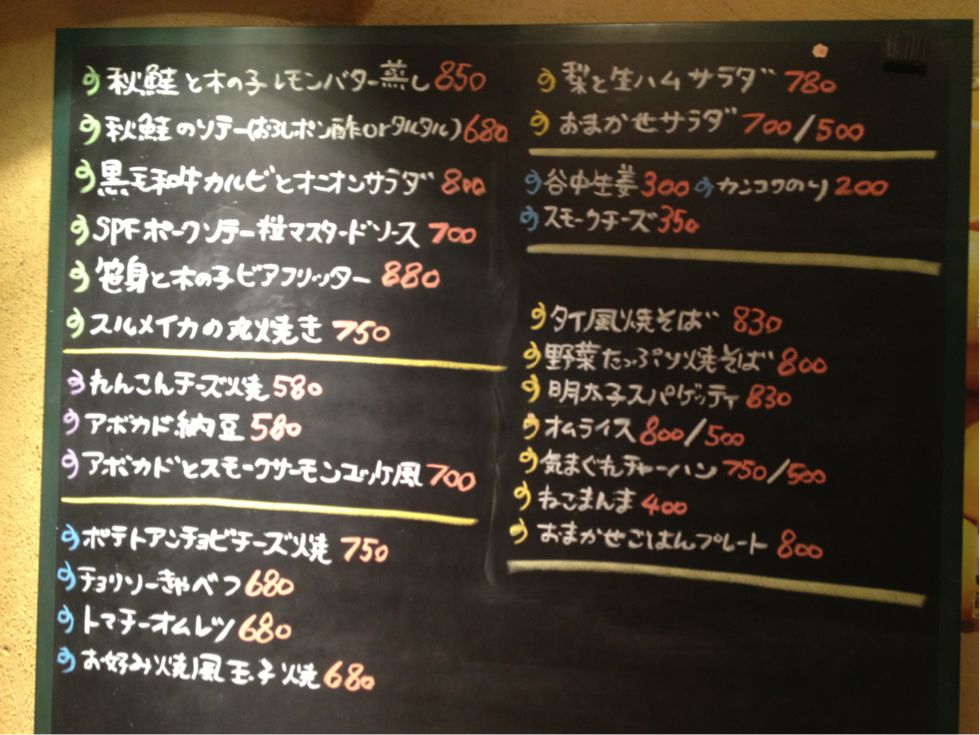 秋鮭と木の子レモンバター蒸し 850
秋鮭のソテー(おろしポン酢orタルタル) 680
黒毛和牛カルビとオニオンサラダ 800
SPFポークソテー粒マスタードソース 700
笹身と木の子ビアフリッター 880
スルメイカの丸焼き 750
れんこんチーズ焼 580
アボカド納豆 580
アボカドとスモークサーモンユッケ風 700
ポテトアンチョビチーズ焼 750
チョリソーきゃべつ 680
トマチーオムレツ 680
お好み焼風玉子焼 680
梨と生ハムサラダ 780
おまかせサラダ 700/500
谷中生姜 300 カンコクのり 200
スモークチーズ 350
タイ風焼そば 830
野菜たっぷり焼そば 800
明太子スパゲッティ 830
オムライス 800/500
気まぐれチャーハン 750/500
ねこまんま 400
おまかせごはんプレート 800